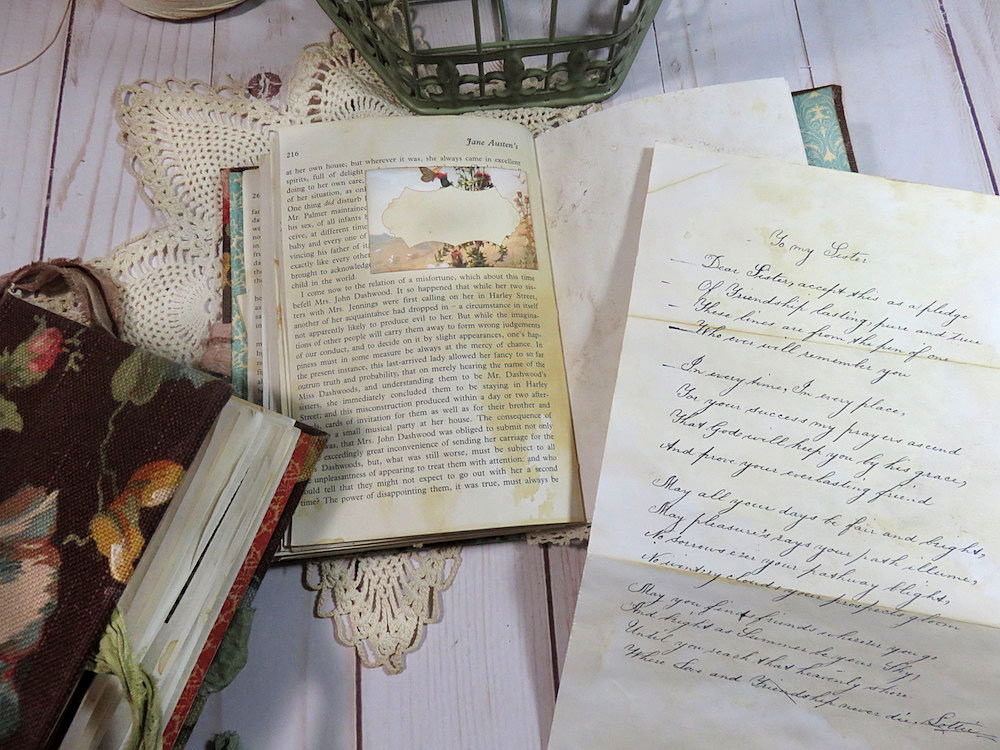 216
Jane Austen's
at her own house; but wherever it was, she always came in excellent
spirits, full of delight
doing to her own care,
of her situation, as onl
One thing did disturb h
Mr. Palmer maintained
his sex, of all infants b
ceive, at different time
baby and every one of
vincing his father of it,
exactly like every other
brought to acknowledge
child in the world.
I come now to the relation of a misfortune, which about this time
befell Mrs. John Dashwood. It so happened that while her two sis-
ters with Mrs. Jennings were first calling on her in Harley Street,
another of her acquaintance had dropped in – a circumstance in itself
not apparently likely to produce evil to her. But while the imagina-
tions of other people will carry them away to form wrong judgements
of our conduct, and to decide on it by slight appearances, one's hap-
piness must in some measure be always at the mercy of chance. In
the present instance, this last-arrived lady allowed her fancy to so far
outrun truth and probability, that on merely hearing the name of the
Miss Dashwoods, and understanding them to be Mr. Dashwood's
sisters, she immediately concluded them to be staying in Harley
Street; and this misconstruction produced within a day or two after-
cards of invitation for them as well as for their brother and
a small musical party at her house. The consequence of
was, that Mrs. John Dashwood was obliged to submit not only
exceedingly great inconvenience of sending her carriage for the
Dashwoods, but, what was still worse, must be subject to all
unpleasantness of appearing to treat them with attention; and who
ould tell that they might not expect to go out with her a second
time? The power of disappointing them, it was true, must always be
To my Sister
Dear Sister, accept this as a pledge
Of Friendship lasting pure and true
These lines are from the pen of one
Who ever will remember you
In every time, In every place,
For your success my prayers ascend
That God will keep you by his grace,
And prove your everlasting friend
May all your days be fair and bright,
May pleasure's rays your path illume,
No sorrows e'er your pathway blight,
No wintry clouds your prospects gloom
May you find friends where'er you go
And bright as Summer be your Sky,
Until you reach that heavenly shore
Where Love and Friendship never die. Lottie